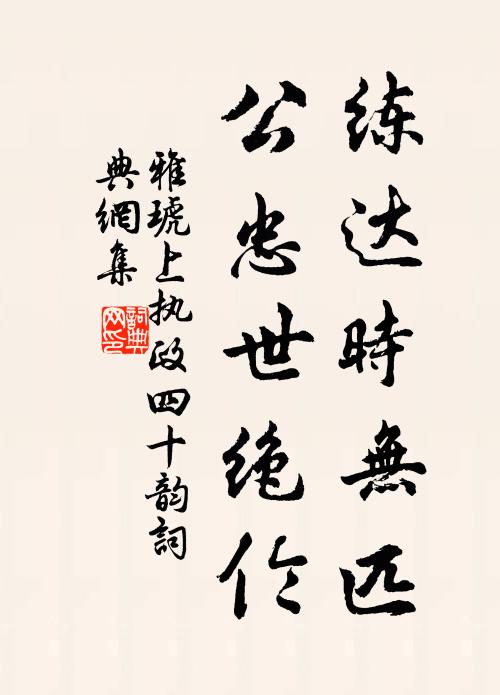 练达時無匹
公忠世绝伦
雅琥上执政四十韵詞
典網集
詞典
网印